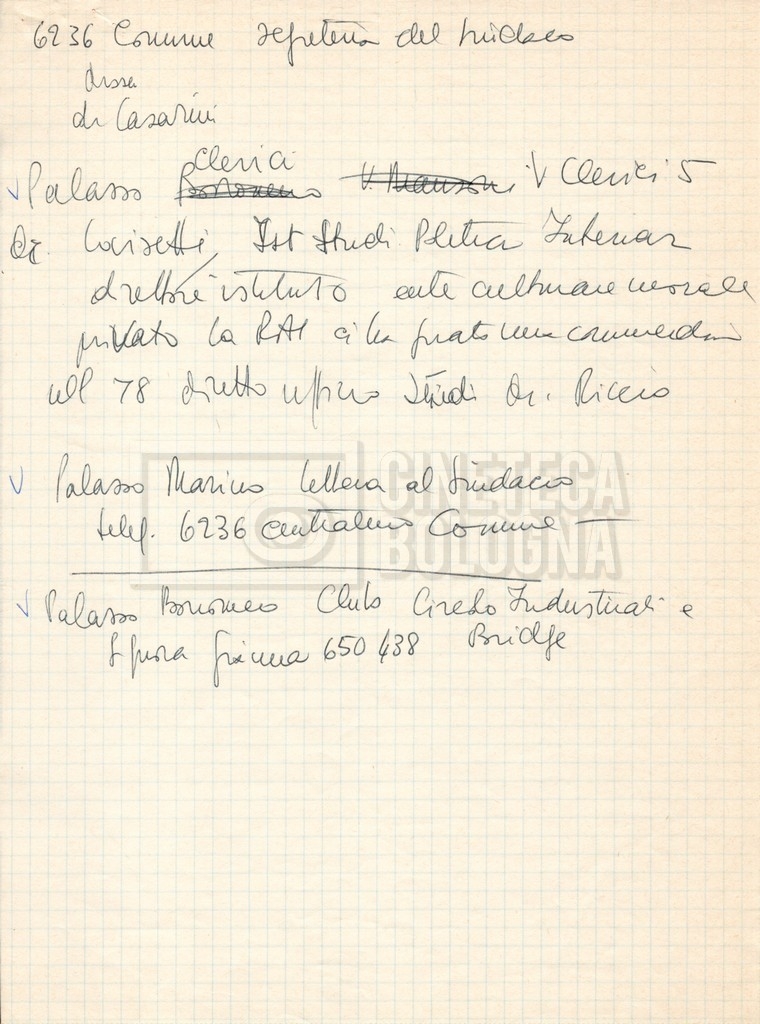 6236 Comune segreteria del sindaco
dr.ssa
de Casarini
Clerici
v Palazzo Borromeo V. Manzoni V Clerici 5
Dr. Ist Studi Politica Internaz
direttore istituto ente culturale morale
privato la RAI ci ha girato una commedia
nel 78 diretto ufficio Studi Dr. Riccio
v Palazzo Marino lettera al Sindaco
telef. 6236 centralino Comune —
v Palazzo Borromeo Club Circolo Industriali e
Bridge
Signora Gianna 650 438
CINETECA
BOLOGNA